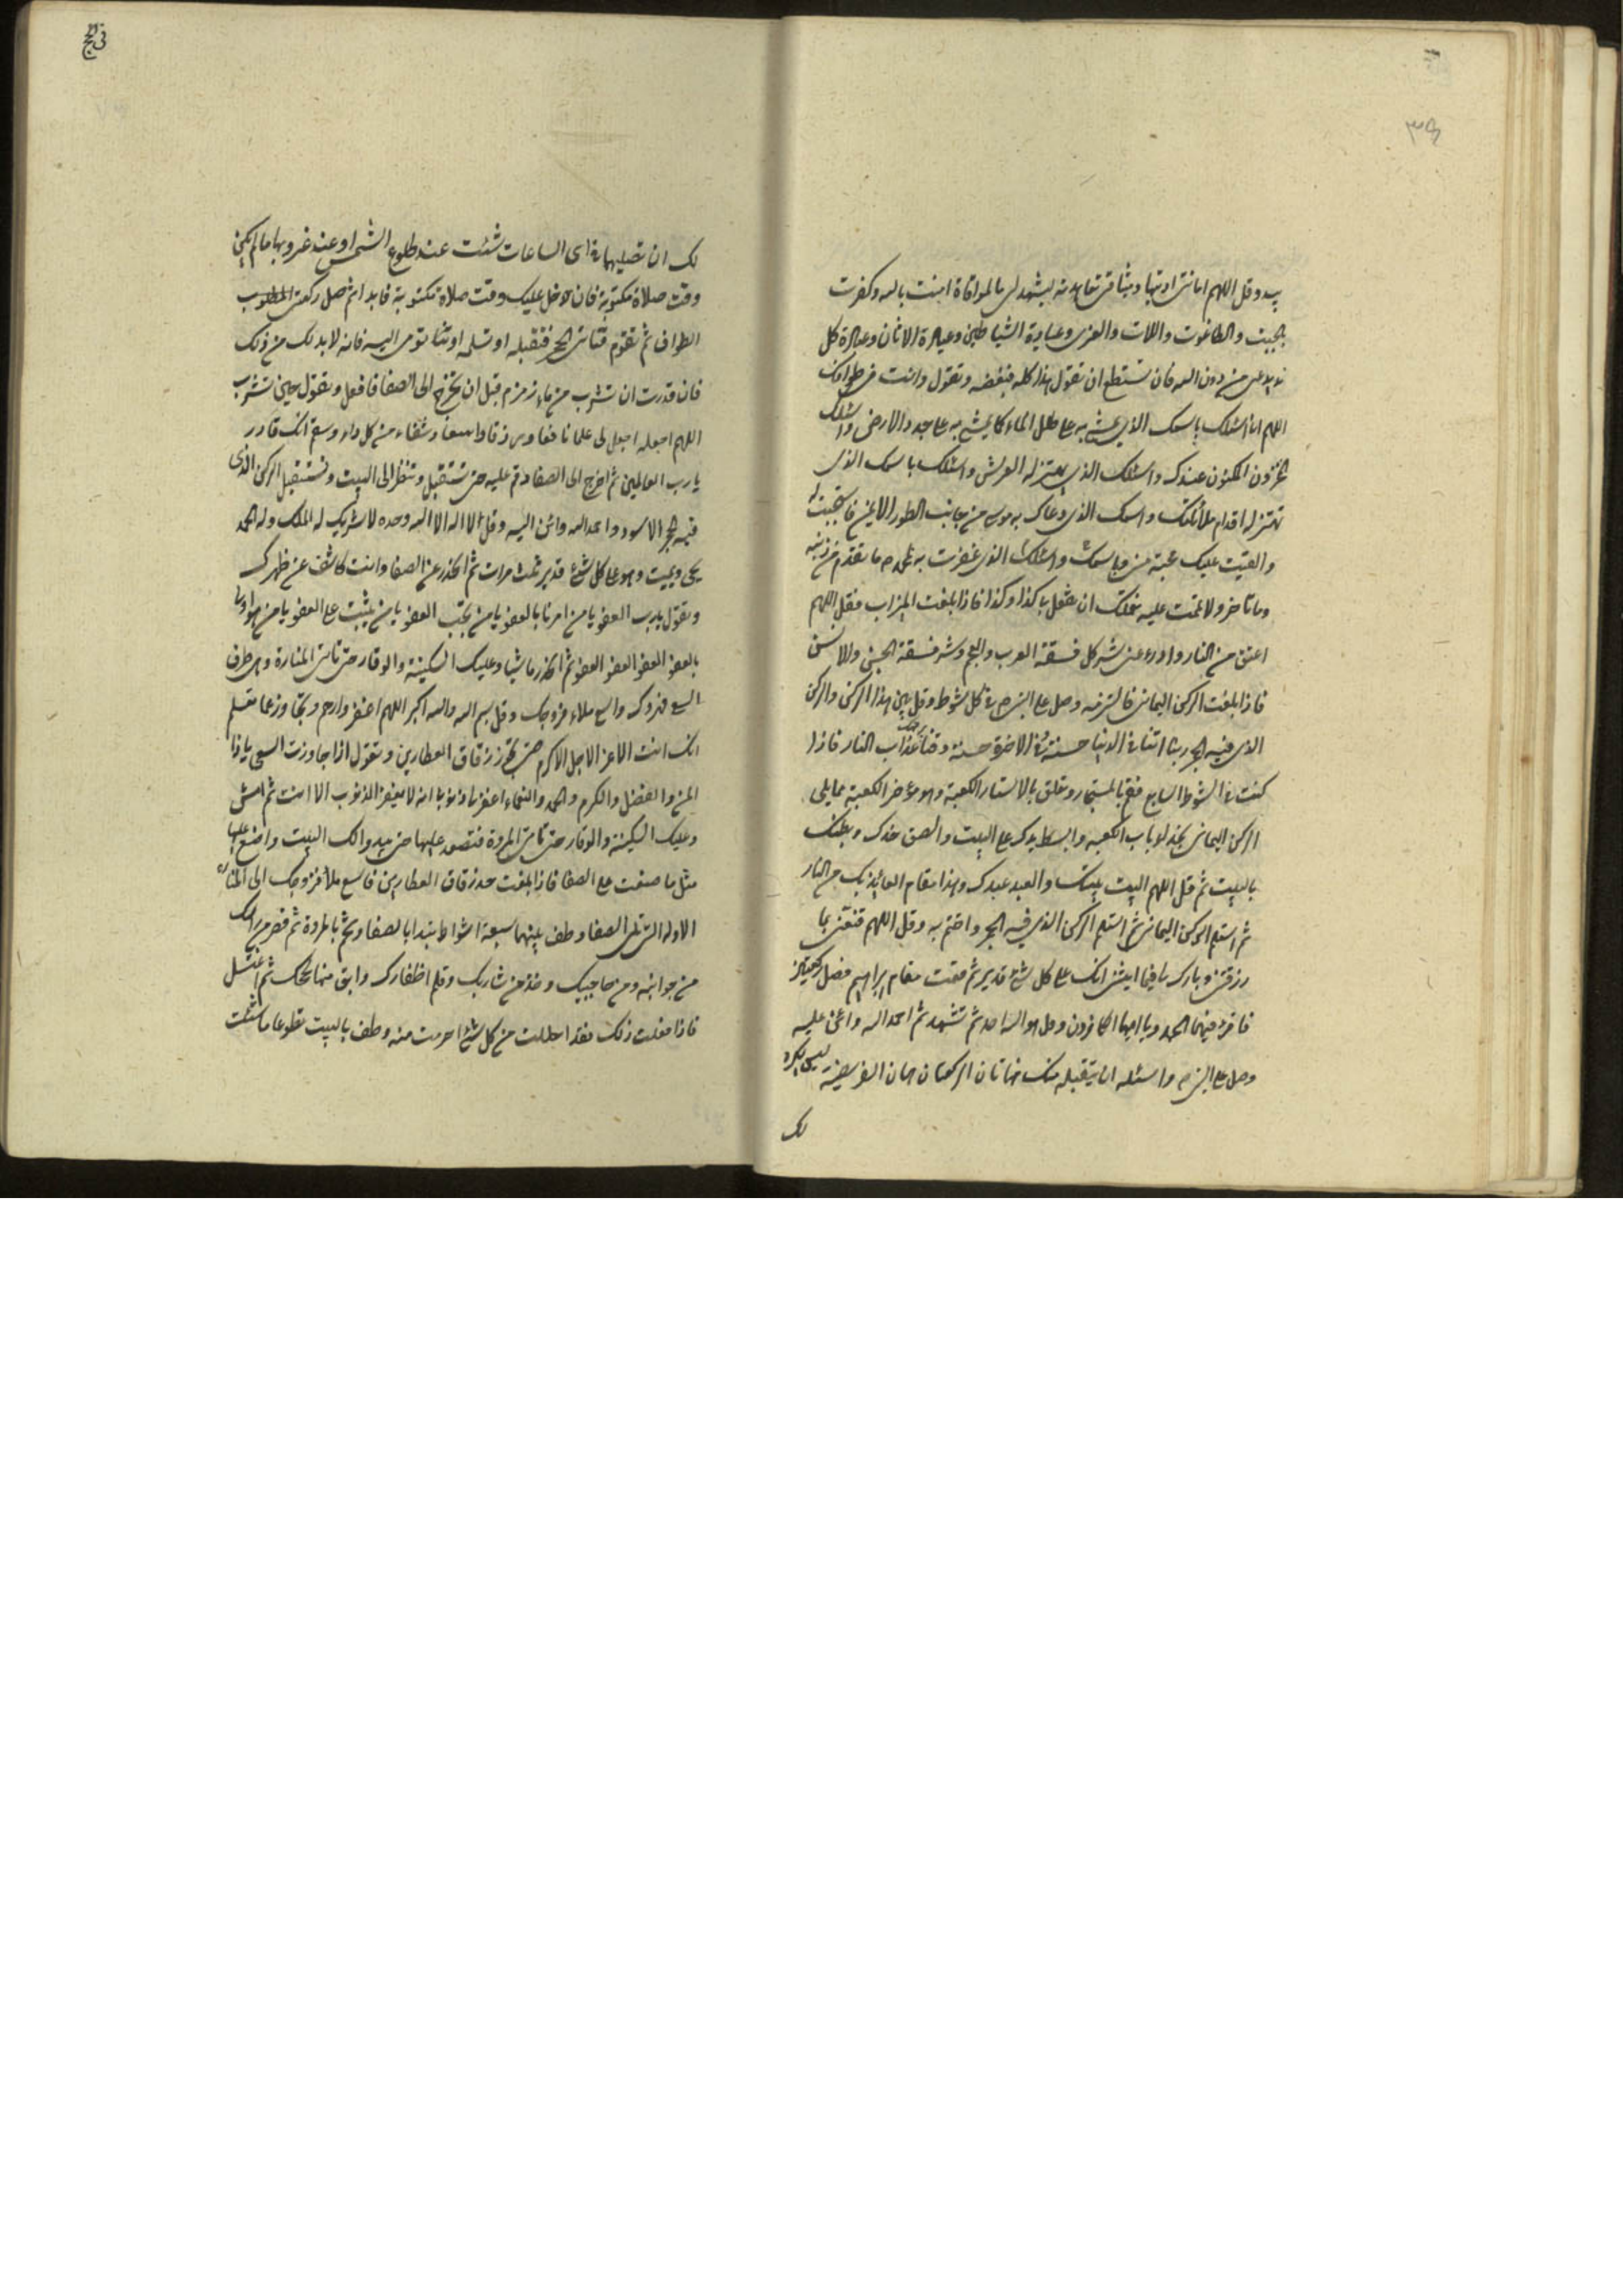 بيده وقل اللهم امانتى اديتها وميثاقى تعاهدته ليشهد لى بالموافاة امنت بالله وكفرت
بالجبت والطاغوت واللات والعزى وعبادة الشياطين وعبادة الاوثان وعبادة كل
ند يدعى من دون الله فان لم تستطع ان تقول هذا كله فبعضه وتقول وانت فى طوافك
اللهم انى اسئلك باسمك الذى يمشى به على طلل الماء كما يمشى به على جدد الارض واسئلك
المخزون المكنون عندك واسئلك الذى يهتز له العرش واسئلك باسمك الذى
تهتز له اقدام ملائكتك واسمك الذى دعاك به موسى من جانب الطور الايمن فاستجبت له
والقيت عليك محبة منى وباسمك واسئلك الذى غفرت به لمحمد ص ما تقدم من ذنبه
وما تاخر ولاتممت عليه نعمتك ان تفعل بى كذا وكذا فاذا بلغت الميزاب فقل اللهم
اعتق من النار وادرء عنى شر كل فسقة العرب والعجم وشر فسقة الجن والانس
فاذا بلغت الركن اليمانى فالتزمه وصل على النبى ص فى كل شوط وقل بين هذا الركن والركن
الذى فيه الحجر ربنا اتنا فى الدنيا حسنة وفى الاخرة حسنة وقنا برحمتك عذاب النار فاذا
كنت فى الشوط السابع فقم بالمستجار وتعلق بالاستار الكعبة وهو مؤخر الكعبة مما يلى
الركن اليمانى بحذاء باب الكعبه وابسط يدك على البيت والصق خدك وبطنك
بالبيت ثم قل اللهم البيت بيتك والعبد عبدك وهذا مقام العائذ بك من النار
ثم استلم الركن اليمانى ثم استلم الركن الذى فيه الحجر واختم به وقل اللهم قنعنى بما
رزقتنى وبارك لى فيما اتيتنى انك على كل شىء قدير ثم تقف مقام ابراهيم فصل ركعتين
فاقرء فيهما الحمد ويا ايها الكافرون وقل هو الله احد ثم تشهد ثم احمد الله واثن عليه
وصل على النبى ص واسئله ان يتقبله منك فهاتان الركعتان هما الفريضة ليس يكره
لك
فى الحج
لك ان تصليهما فى اى الساعات شئت عند طلوع الشمس او عند غروبها ما لم يكن
وقت صلاة مكتوبة فان دخل عليك وقت صلاة مكتوبة فابدا ثم صل ركعتى المطلوب
الطواف ثم تقوم فتأتى الحجر فتقبله او تسلمه او تومى اليه فانه لا بد لك من ذلك
فان قدرت ان تشرب من ماء زمزم قبل ان تخرج الى الصفا فافعل وتقول حين تشرب
اللهم اجعله اجعل لى علما نافعا ورزقا واسعا وشفاء من كل داء وسقم انك قادر
يا رب العالمين ثم اخرج الى الصفا وقم عليه حتى تستقبل وتنظر الى البيت وتستقبل الركن الذى
فيه الحجر الاسود واحمد الله واثن اليه وقل لا اله الا الله وحده لا شريك له الملك وله الحمد
يحى ويميت وهو على كل شىء قدير ثلث مرات ثم انحدر عن الصفا وانت كاشف عن ظهرك
وتقول يا رب العفو يا من امرنا بالعفو يا من يحب العفو يا من يثيب على العفو يا من هو اولى
بالعفو العفو العفو العفو ثم انحدر ماشيا وعليك السكينة والوقار حتى تأتى المنارة وهى طرف
السعى فهروك واسع ملاء فروجك وقل بسم الله والله اكبر اللهم اغفر وارحم وتجاوز عما تعلم
انك انت الاعز الاجل الاكرم حتى تجوز زقاق العطارين وتقول اذا جاوزت السعى يا ذا
المن والفضل والكرم والحمد والنعماء اغفر لى ذنوبى انه لا يغفر الذنوب الا انت ثم امش
وعليك السكينة والوقار حتى تأتى المروة فتصعد عليها حتى يبدوا لك البيت واصنع عليها
مثل ما صنعت على الصفا فاذا بلغت حد زقاق العطارين فاسع ملأ فروجك الى المنارة
الاوله التى تلى الصفا وطف بينهما سبعة اشواط تبدا بالصفا وتختم بالمروة ثم قصر من راسك
من جوانبه ومن حاجبيك وخذ من شاربك وقلم اظفارك وابق منها لحجك ثم اغتسل
فاذا فعلت ذلك فقد احللت من كل شىء احرمت منه وطف بالبيت تطوعا ما شئت